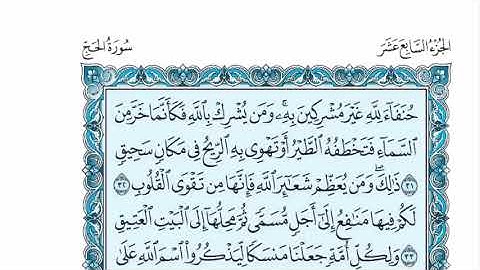 الجُزْءُ السَّابِعَ عَشَرَ
سُورَةُ الحَجِّ
حُنَفَآءَ لِلَّهِ غَيْرَ مُشْرِكِينَ بِهِۦۚ وَمَن يُشْرِكْ بِٱللَّهِ فَكَأَنَّمَا خَرَّ مِنَ
ٱلسَّمَآءِ فَتَخْطَفُهُ ٱلطَّيْرُ أَوْ تَهْوِي بِهِ ٱلرِّيحُ فِي مَكَانٍ سَحِيقٍ
٣١ ذَٰلِكَۖ وَمَن يُعَظِّمْ شَعَٰٓئِرَ ٱللَّهِ فَإِنَّهَا مِن تَقْوَى ٱلْقُلُوبِ ٣٢
لَكُمْ فِيهَا مَنَٰفِعُ إِلَىٰٓ أَجَلٍ مُّسَمًّى ثُمَّ مَحِلُّهَآ إِلَى ٱلْبَيْتِ ٱلْعَتِيقِ
٣٣ وَلِكُلِّ أُمَّةٍ جَعَلْنَا مَنسَكًا لِّيَذْكُرُوا۟ ٱسْمَ ٱللَّهِ عَلَىٰ